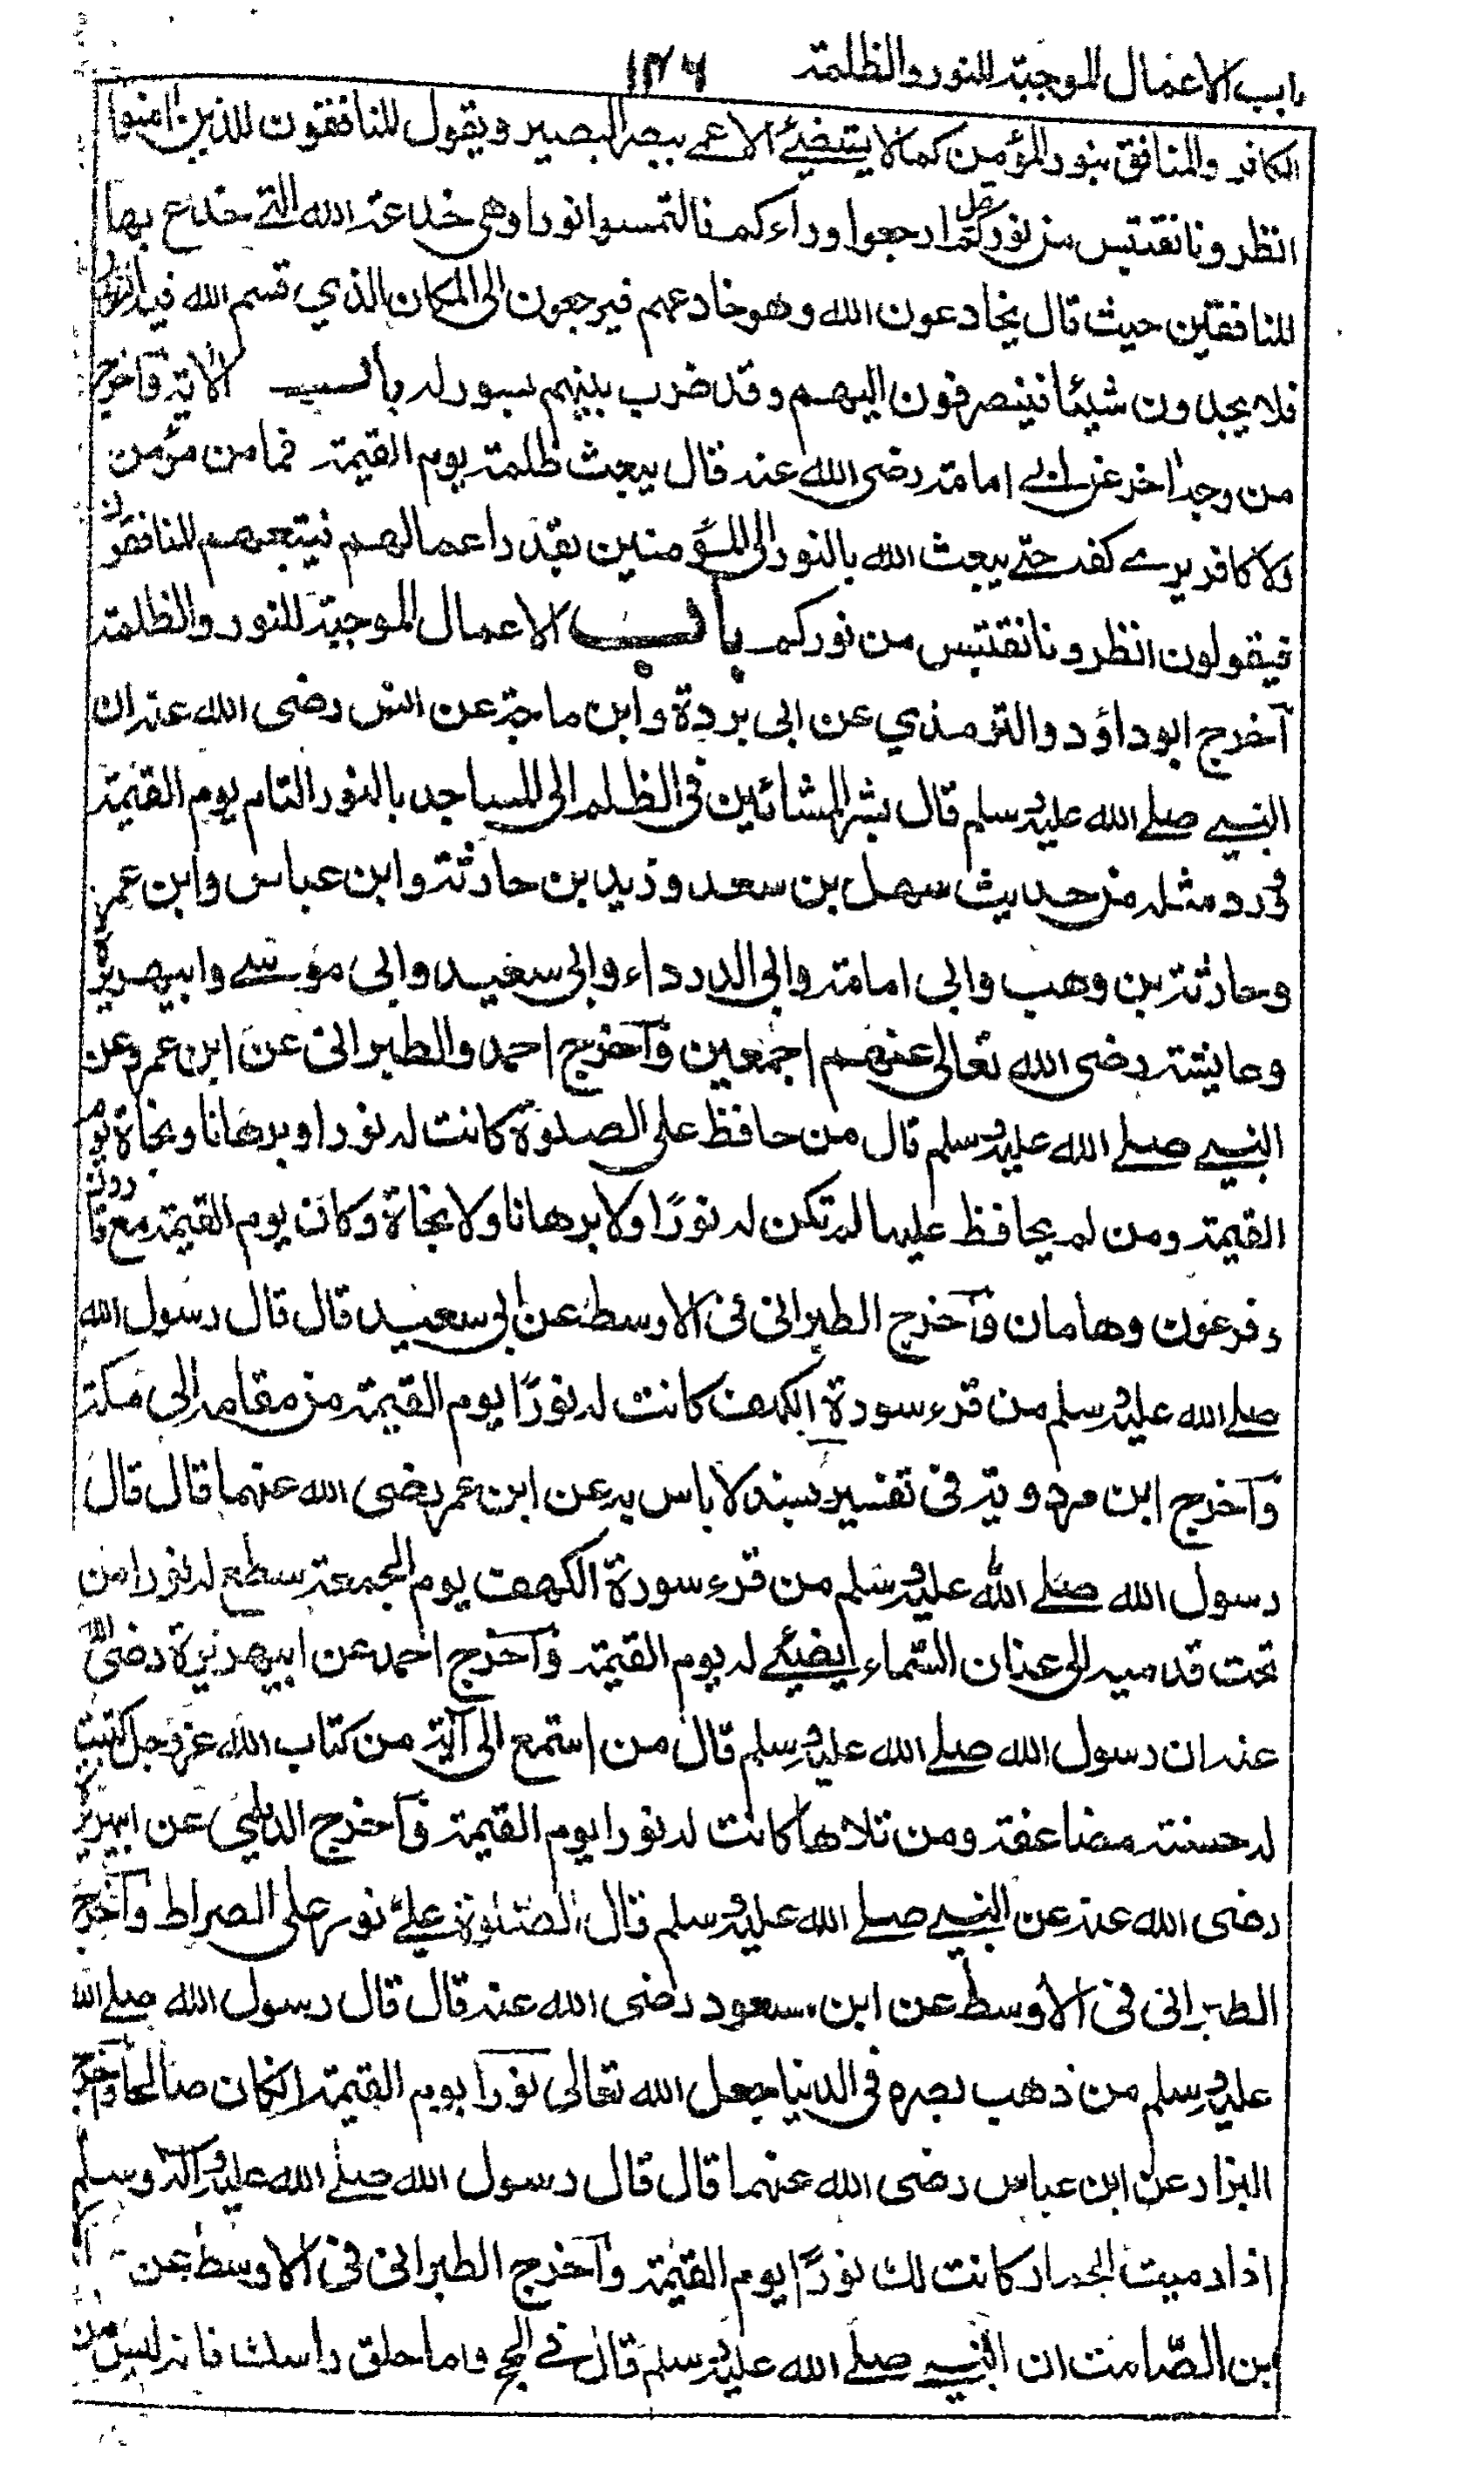 باب الاعمال الموجبة للنور والظلمة ١٢٦
الكافر والمنافق بنور المؤمن كما لا يستضئ الاعمى ببصر البصير ويقول المنافقون للذين امنوا
انظرونا نقتبس من نوركم قيل ارجعوا وراءكم فالتمسوا نورا وهى خدعة الله التى خدع بها
المنافقين حيث قال يخادعون الله وهو خادعهم فيرجعون الى المكان الذي قسم الله فيه النور
فلا يجدون شيئا فينصرفون اليهم وقد ضرب بينهم بسور له باب الاية وآخرج
من وجه اخر عن ابى امامة رضى الله عنه قال يبعث ظلمة يوم القيمة فما من مؤمن
ولا كافر يرى كفه حتى يبعث الله بالنور الى المؤمنين بقدر اعمالهم فيتبعهم المنافقون
فيقولون انظرونا نقتبس من نوركم باب الاعمال الموجبة للنور والظلمة
آخرج ابو داؤد والترمذي عن ابى بردة وابن ماجة عن انس رضى الله عنه ان
النبى صلى الله عليه وسلم قال بشر المشائين فى الظلم الى المساجد بالنور التام يوم القيمة
ورد مثله من حديث سهل بن سعد وزيد بن حارثة وابن عباس وابن عمر
وحارثة بن وهب وابي امامة وابى الدرداء وابى سعيد وابى موسى وابيهريرة
وعايشة رضى الله تعالى عنهم اجمعين وآخرج احمد والطبرانى عن ابن عمرو عن
النبى صلى الله عليه وسلم قال من حافظ على الصلوة كانت له نورا وبرهانا ونجاة يوم
القيمة ومن لم يحافظ عليها لم تكن له نورًا ولا برهانا ولا نجاة وكان يوم القيمة مع قارون
وفرعون وهامان وآخرج الطبرانى فى الاوسط عن ابى سعيد قال قال رسول الله
صلى الله عليه وسلم من قرء سورة الكهف كانت له نورًا يوم القيمة من مقامه الى مكة
وآخرج ابن مردوية فى تفسيره بسند لا باس به عن ابن عمر رضى الله عنهما قال قال
رسول الله صلى الله عليه وسلم من قرء سورة الكهف يوم الجمعة سطع له نورا من
تحت قدميه الى عنان السّماء يضيئ له يوم القيمة وآخرج احمد عن ابيهريرة رضى الله
عنه ان رسول الله صلى الله عليه وسلم قال من استمع الى آية من كتاب الله عزوجل كتبت
له حسنة مضاعفة ومن تلاها كانت له نورا يوم القيمة وآخرج الديلمى عن ابيهريرة
رضى الله عنه عن النبى صلى الله عليه وسلم قال الصّلوة علىّ نور على الصراط وآخرج
الطبرانى فى الاوسط عن ابن مسعود رضى الله عنه قال قال رسول الله صلى الله
عليه وسلم من ذهب بصره فى الدنيا جعل الله تعالى نورًا يوم القيمة انكان صالحا وآخرج
البزار عن ابن عباس رضى الله عنهما قال قال رسول الله صلى الله عليه وآله وسلم
اذا رميت الجمار كانت لك نورًا يوم القيمة وآخرج الطبرانى فى الاوسط عن
بن الصّامت ان النبى صلى الله عليه وسلم قال فى الحج واما حلق راسك فانه ليس من